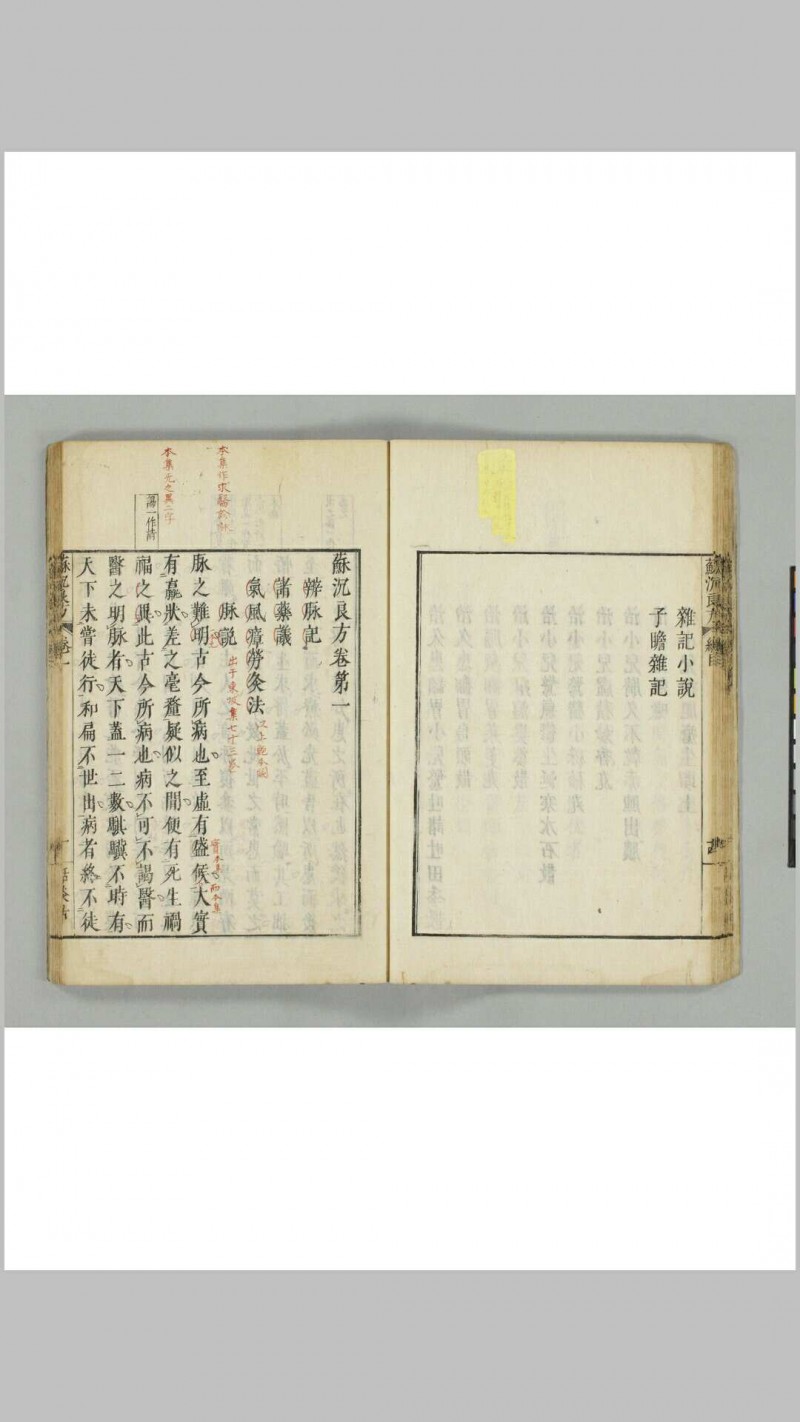 雜記小說
子瞻雜記
蘇沉良方卷第一
辨脉記
諸藥議
氣風瘴勞灸法
脉說 出于東坡集七十三卷
脉之難明古今所病也至虛有盛候大實
有羸狀差之毫釐疑似之間便有死生禍
福之異此古今所病也病不可不謁醫而
醫之明脉者天下蓋一二數騏驥不時有
天下未嘗徒行和扁不世出病者終不徒
本集无之異二字
謁一作請
卷一